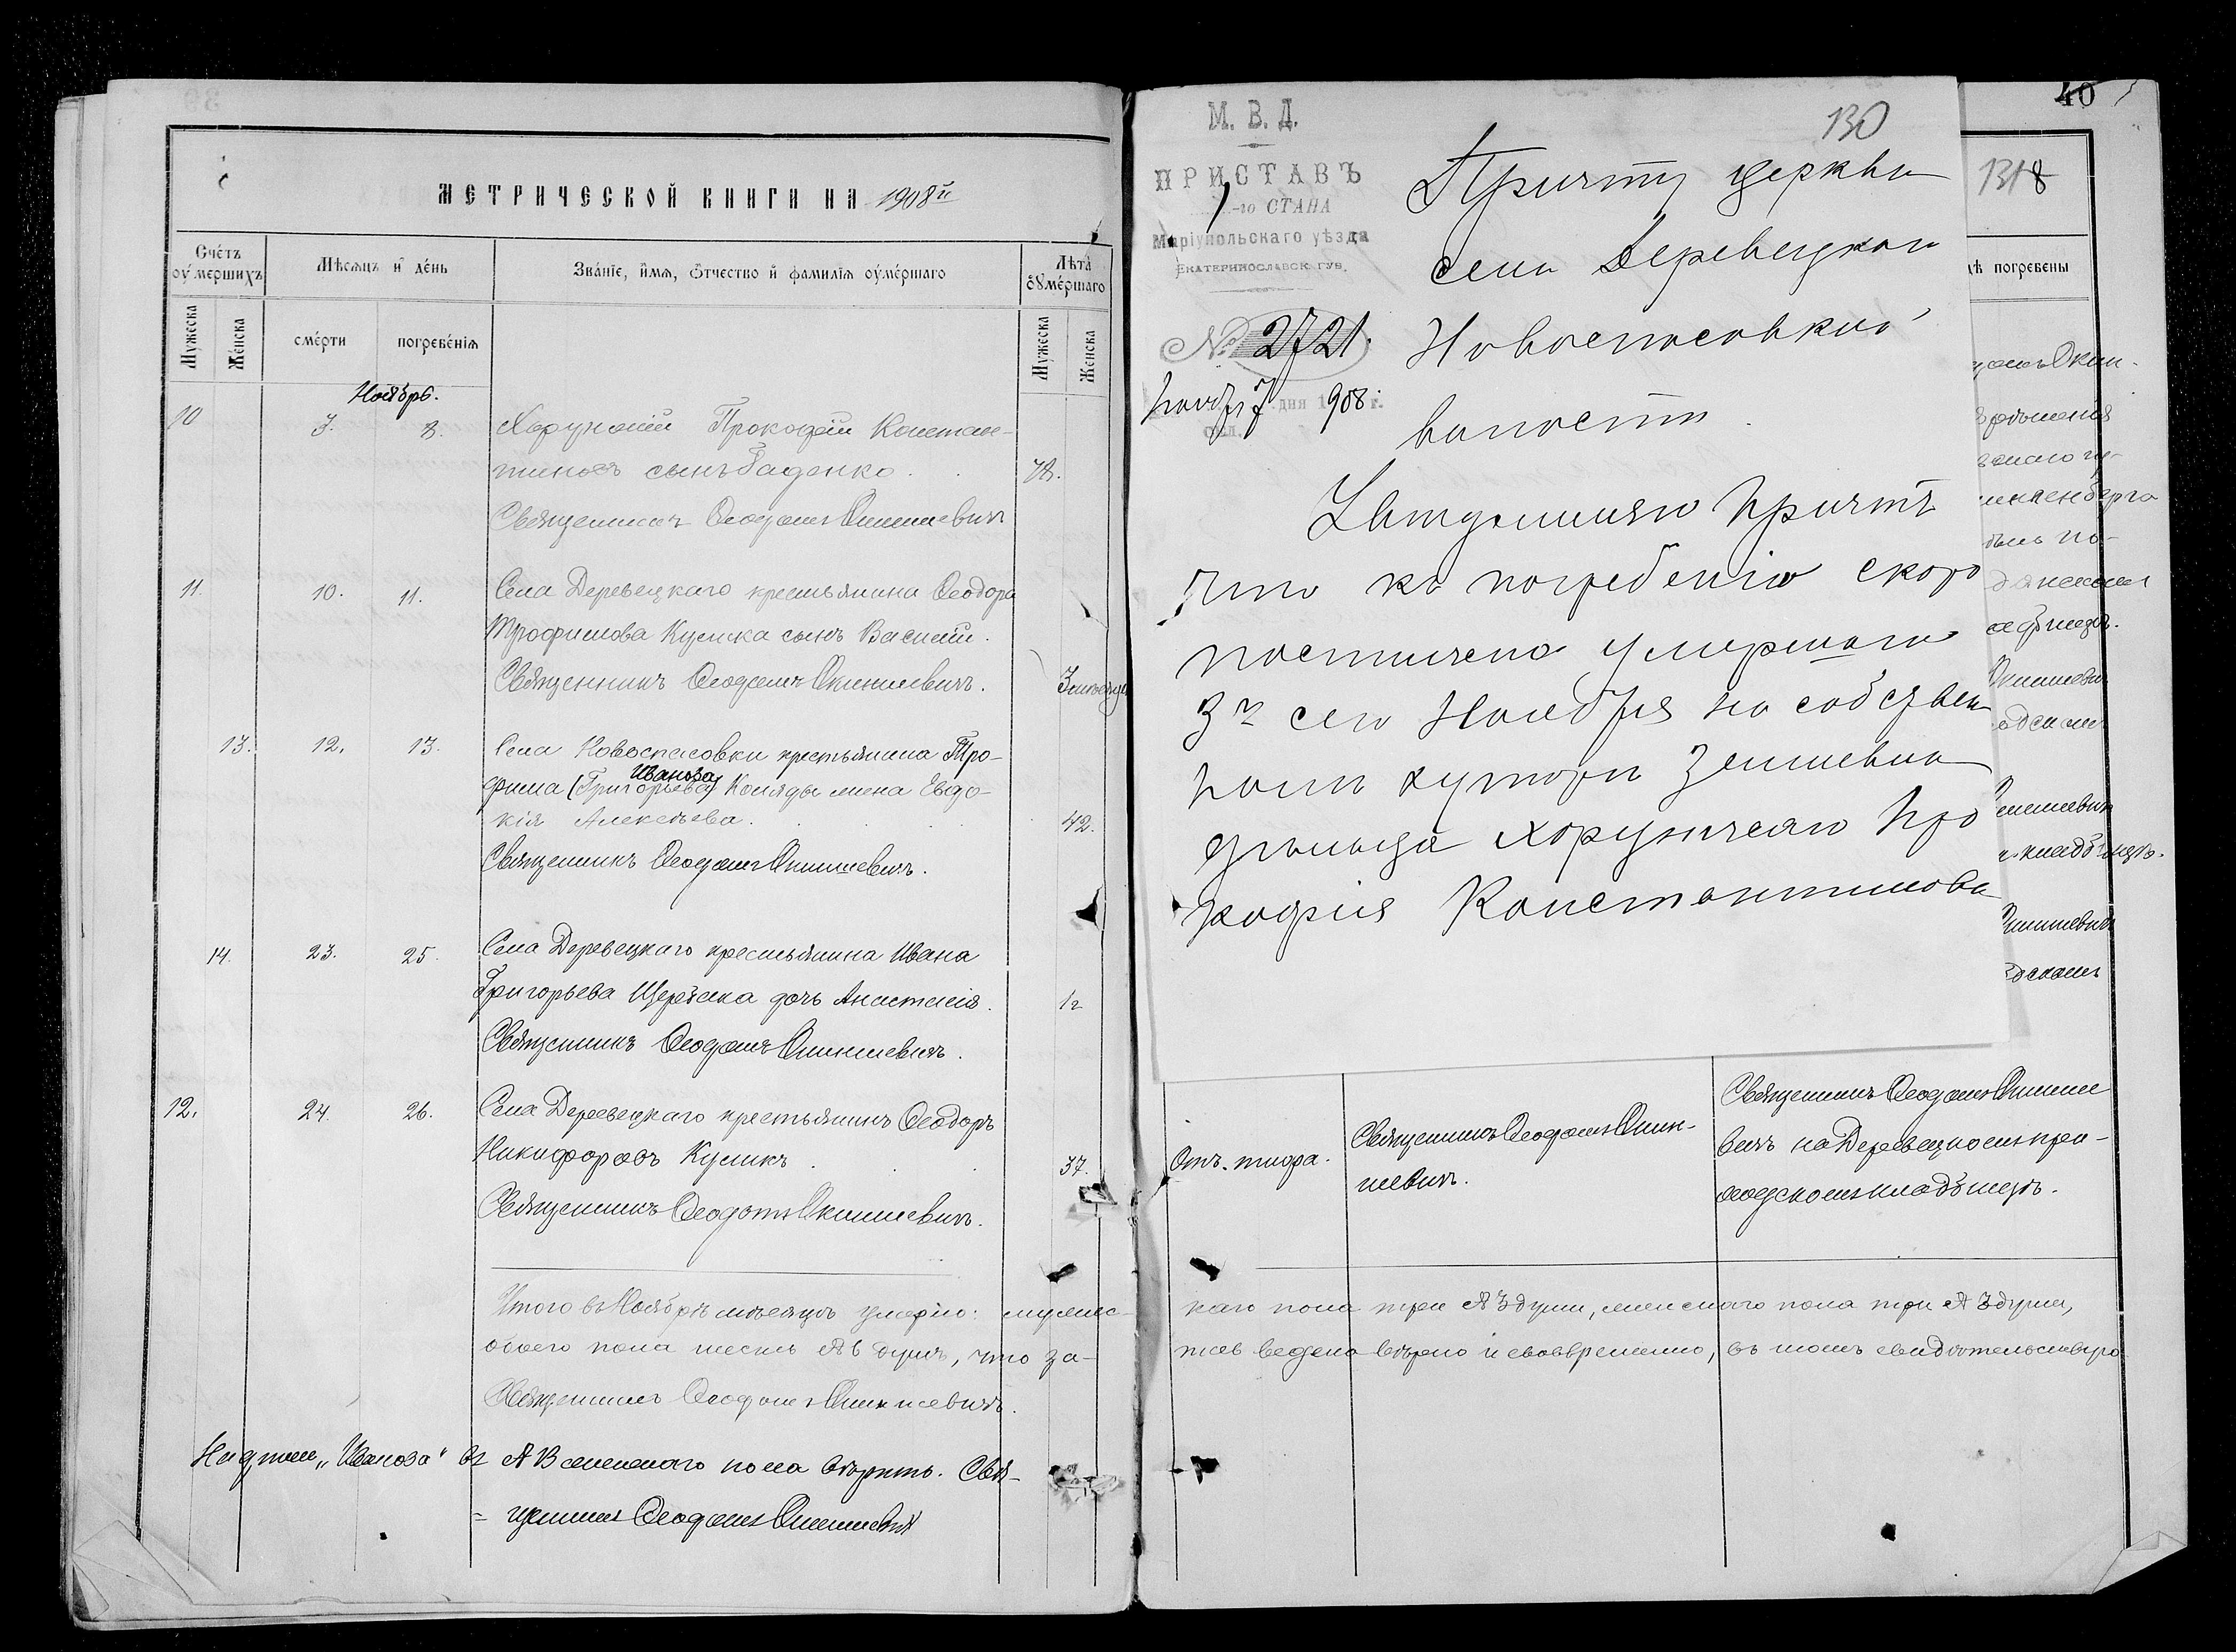 МЕТРИЧЕСКОЙ КНИГИ НА 1908й
Счетъ оумершихъ
Мѣсяцъ и день
Званіе, имя, отчество и фамилія оумершаго
Лѣта оумершаго
Мужеска
Женска
смерти
погребенія
Мужеска
Женска
Ноябрь.
10 3. 8. Хорунжій Прокофій Констан-
тиновъ сынъ Гаденко. 78.
Священникъ Ѳеодотъ Окиншевичъ
11. 10. 11. Села Деревецкаго крестьянина Ѳеодора
Трофимова Кулика сынъ Василій.
Священникъ Ѳеодотъ Окиншевичъ. 3 мѣсяца
13. 12. 13. Села Новоспасовки крестьянина Тро-
Иванова
фима (Григорьева) Коляды жена Евдо-
кія Алексѣева. 42.
Священникъ Ѳеодотъ Окиншевичъ.
14. 23. 25. Села Деревецкаго крестьянина Ивана
Григорьева дочь Анастасія. 1г
Священникъ Ѳеодотъ Окиншевичъ.
12. 24. 26. Села Деревецкаго крестьянинъ Ѳеодоръ
Никифоровъ Куликъ 37.
Священникъ Ѳеодотъ Окиншевичъ.
Итого въ Ноябрѣ мѣсяцѣ умерло: мужес-
обоего пола шесть душъ, что за-
Священникъ Ѳеодотъ Окиншевичъ.
"Иванова" въ женскаго пола вѣрить. Свя-
= щенникъ Ѳеодотъ Окиншевичъ
М. В. Д.
ПРИСТАВЪ
-го СТАНА
Маріупольскаго уѣзда
ЕКАТЕРИНОСЛАВСК. ГУБ.
№ 2721.
нояб 7 дня 1908 г.
130
Причту церкви
села Деревецкаго
Новоспасовской
волости
Увѣдомляю причтъ
что къ погребенію скоро
постижно умершаго
3го сего Ноября на собствен
номъ хуторѣ землевла
дѣльца хорунжаго Про
кофія Константинова
40
1318
дѣ погребены
кладбищѣ.
Отъ тифа.
Священникъ Ѳеодотъ Окин-
шевичъ.
Священникъ Ѳеодотъ Окинше
вичъ на Деревецкомъ при-
ходскомъ кладбищѣ.
каго пола три души, женскаго пола три души,
пись ведена вѣрно и своевременно, въ томъ свидѣтельствую